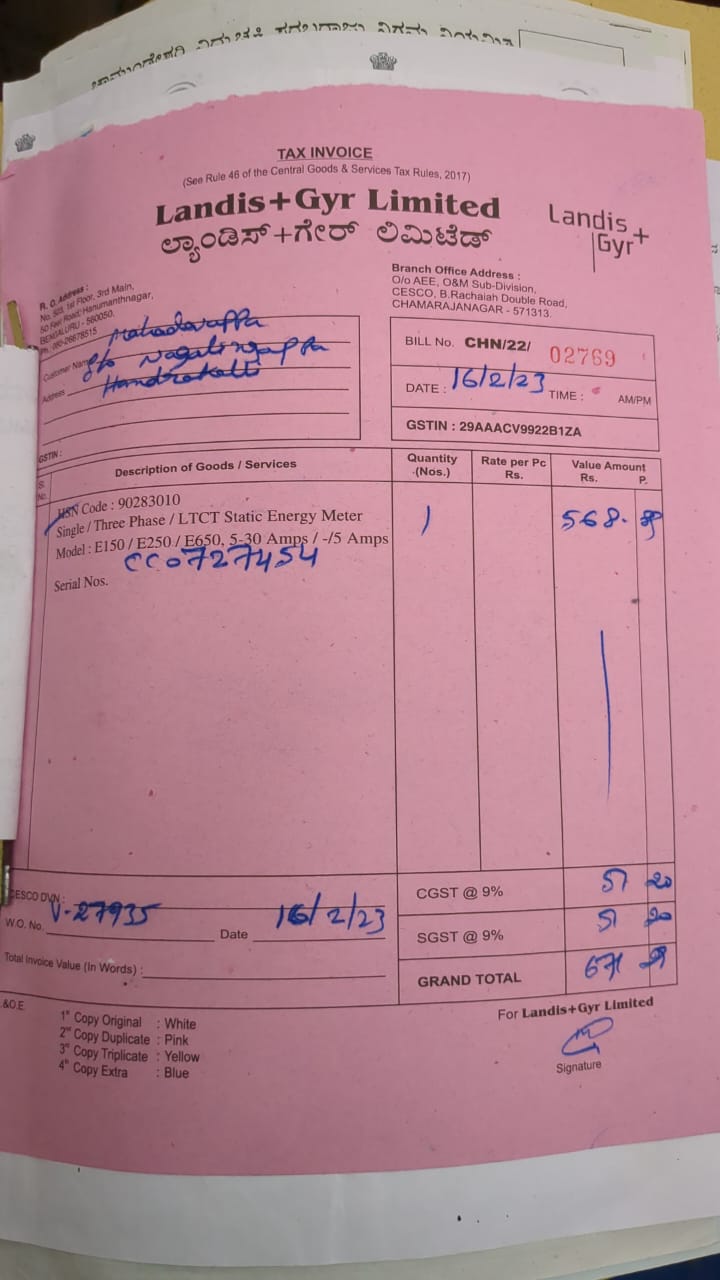 TAX INVOICE
(See Rule 46 of the Central Goods & Services Tax Rules, 2017)
Landis+Gyr Limited
ಲ್ಯಾಂಡಿಸ್+ಗೇರ್ ಲಿಮಿಟೆಡ್
Landis+
Gyr
R. O. Address :
No. 1st Floor, 3rd Main,
50 Feet Road, Hanumanthnagar,
BENGALURU - 560050.
Ph : 080-26678515
Branch Office Address :
O/o AEE, O&M Sub-Division,
CESCO, B.Rachaiah Double Road,
CHAMARAJANAGAR - 571313.
Customer Name Mahadevappa
S/o Nagalingappa
Address
GSTIN :
BILL No. CHN/22/ 02769
DATE : 16/2/23 TIME : AM/PM
GSTIN : 29AAACV9922B1ZA
Sl. No. Description of Goods / Services Quantity (Nos.) Rate per Pc Rs. Value Amount Rs. P.
HSN Code : 90283010
Single / Three Phase / LTCT Static Energy Meter 1 568.
Model : E150 / E250 / E650, 5-30 Amps / -/5 Amps
CC0727454
Serial Nos.
CESCO DVN :
W.O. No. V-27935 Date 16/2/23
CGST @ 9% 51 20
SGST @ 9% 51 20
Total Invoice Value (In Words) :
GRAND TOTAL 671
&O.E.
1st Copy Original : White
2nd Copy Duplicate : Pink
3rd Copy Triplicate : Yellow
4th Copy Extra : Blue
For Landis+Gyr Limited
Signature